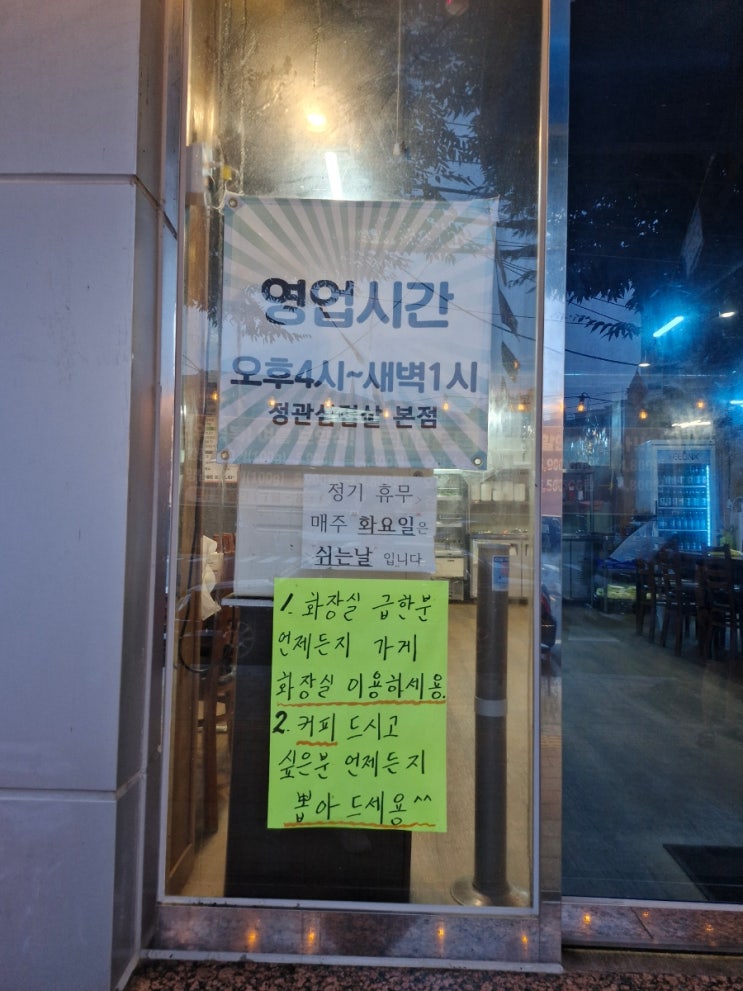 영업시간
오후4시~새벽1시
정관삼겹살 본점
정기 휴무
매주 화요일은
쉬는날 입니다
1. 화장실 급한분
언제든지 가게
화장실 이용하세용.
2. 커피 드시고
싶은분 언제든지
뽑아 드세용^^